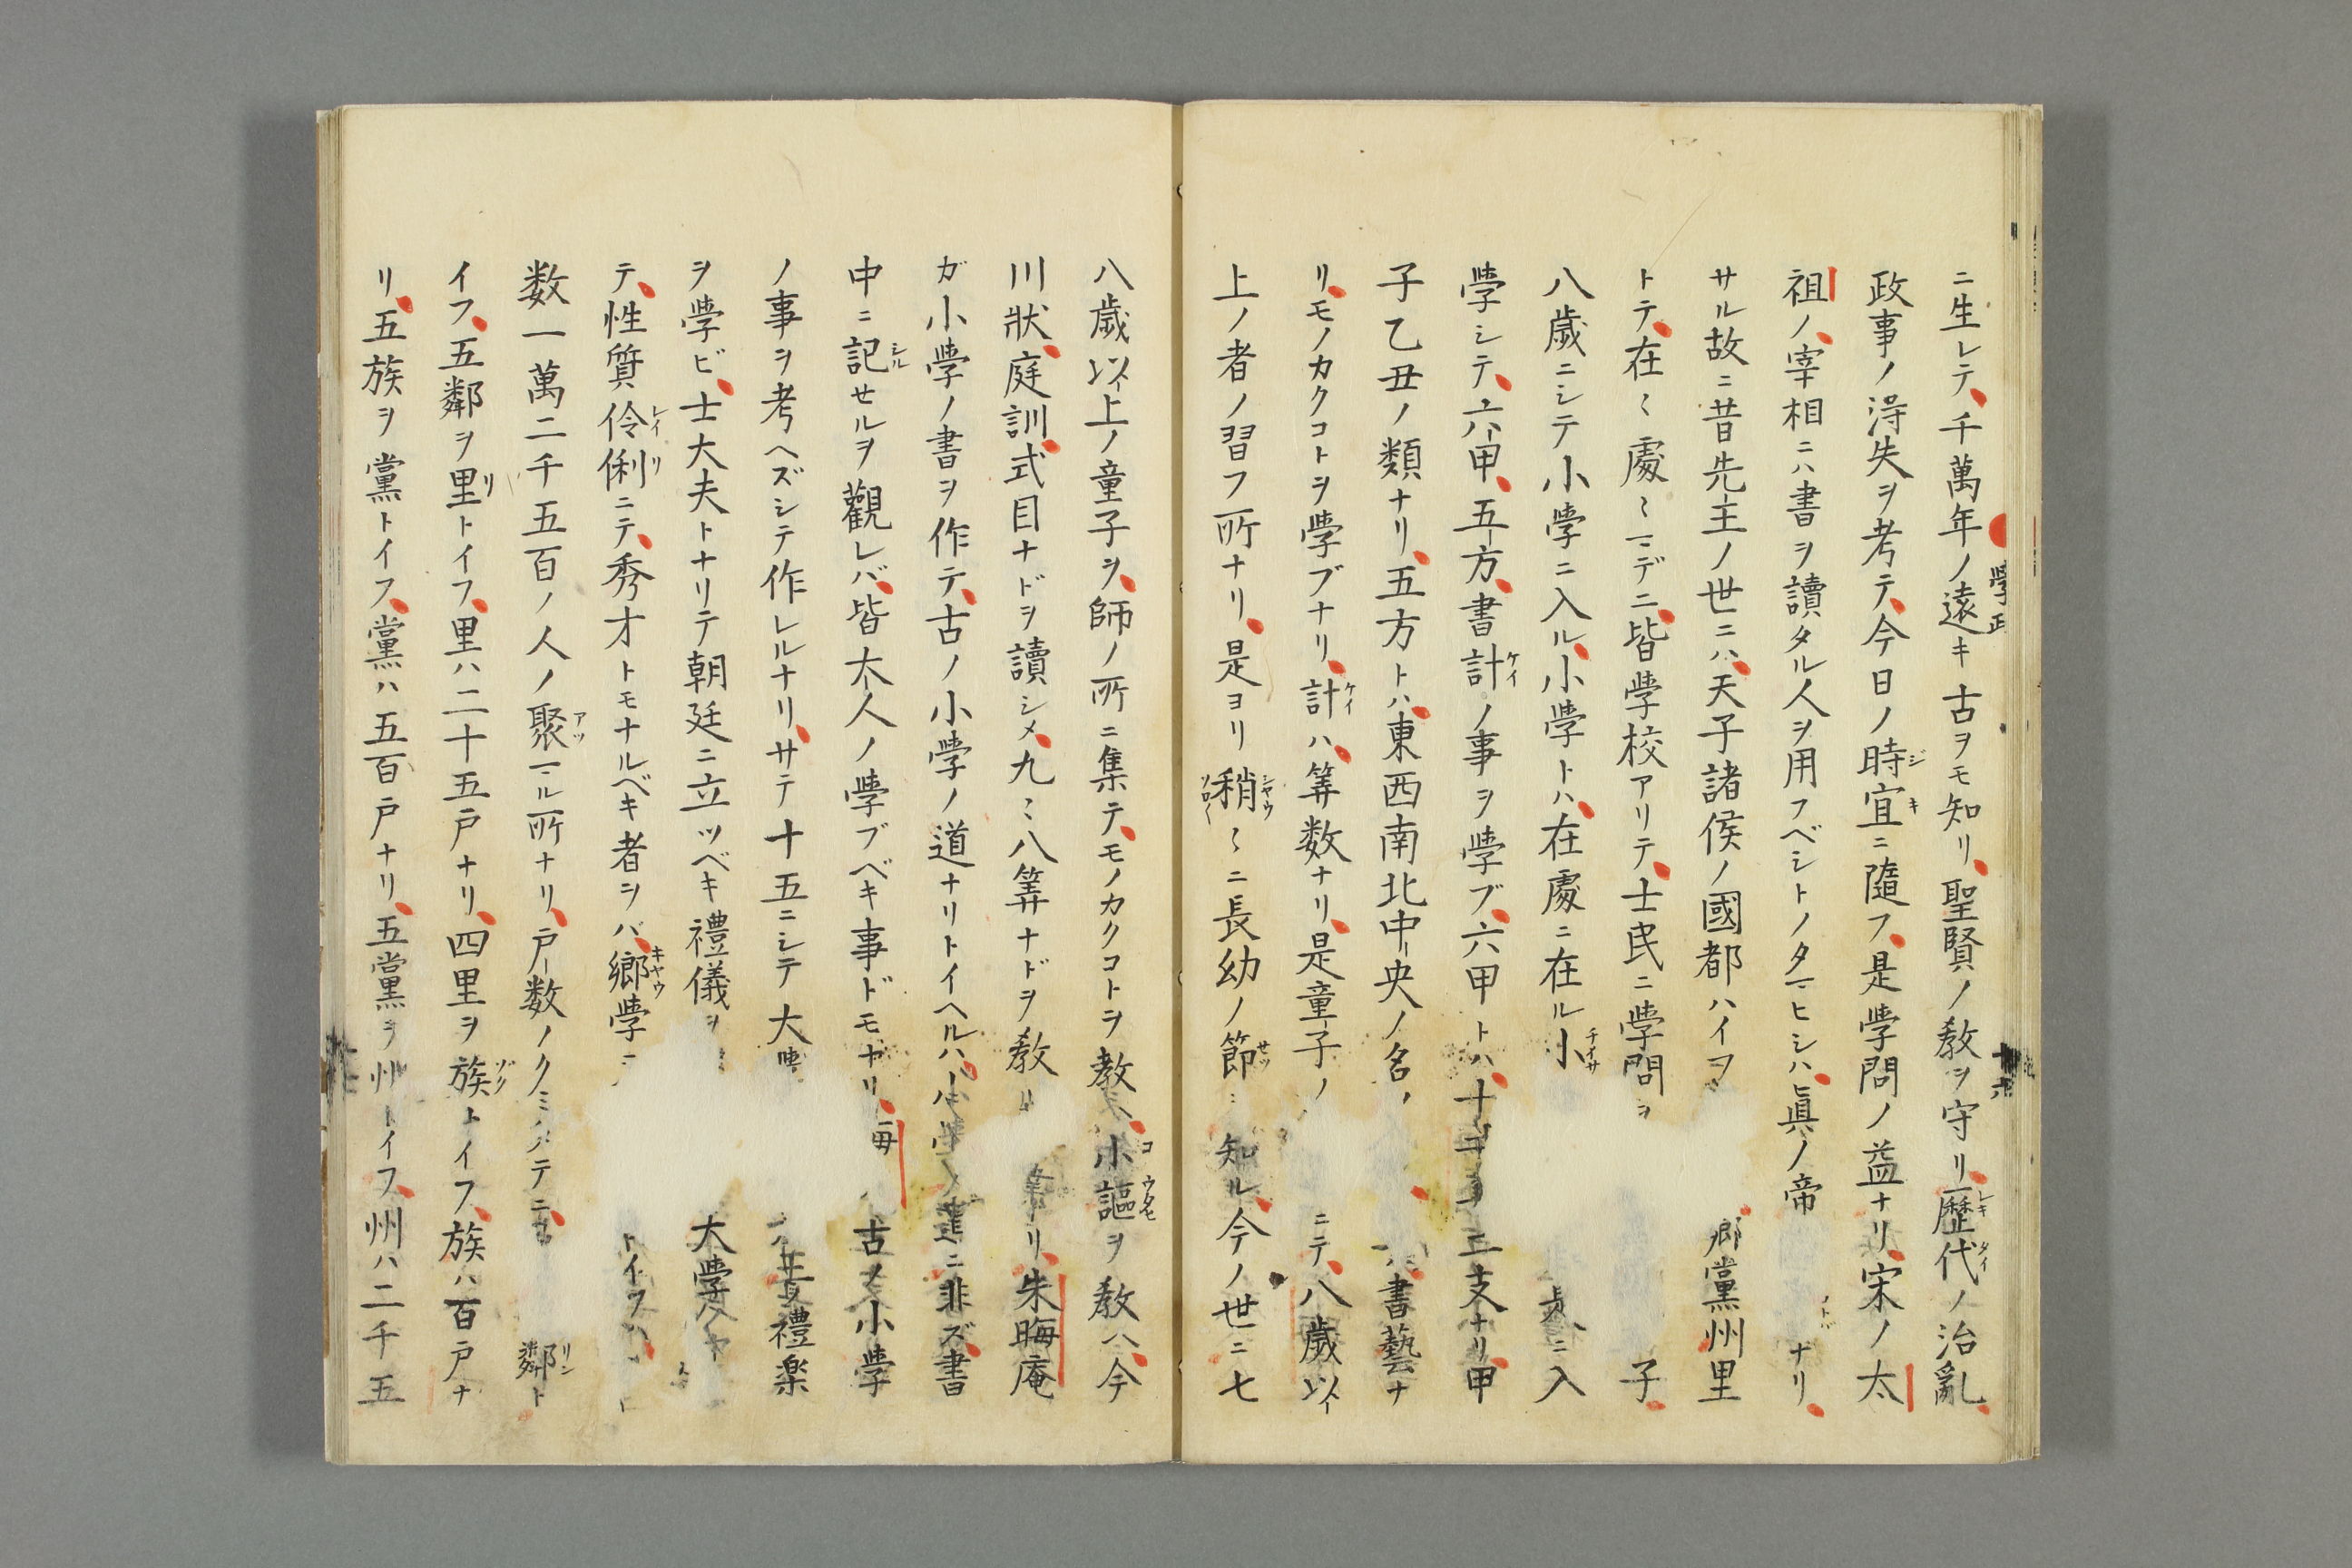 ニ生レテ、千萬年ノ遠キ古ヲモ知リ、聖賢ノ教ヲ守リ、歴代ノ治亂、
政事ノ得失ヲ考テ、今日ノ時宜ニ隨フ、是學問ノ益ナリ、宋ノ太
祖ノ、宰相ニハ書ヲ讀タル人ヲ用フベシトノタマヒシハ、眞ノ帝 ナリ、
サル故ニ昔先王ノ世ニハ、天子諸侯ノ國都ハイヲ 鄕黨州里
トテ、在〻處〻マデニ、皆學校アリテ、士民ニ學問ヲ 子、
八歳ニシテ小學ニ入ル、小學トハ、在處ニ在ル小 ニ入
學シテ、六甲、五方、書計ノ事ヲ學ブ、六甲トハ、十 支ナリ、甲
子乙丑ノ類ナリ、五方トハ、東西南北中央ノ名、 書藝ナ
リ、モノカクコトヲ學ブナリ、計ハ、筭数ナリ、是童子ノ ニテ、八歳以
上ノ者ノ習フ所ナリ、是ヨリ稍〻ニ長幼ノ節 知ル、今ノ世ニ七
八歳以上ノ童子ヲ、師ノ所ニ集テ、モノカクコトヲ教、小謳ヲ教ヘ、今
川狀、庭訓、式目ナドヲ讀シメ、九〻八筭ナドヲ教 リ、朱晦庵
ガ小學ノ書ヲ作テ、古ノ小學ノ道ナリトイヘルハ、 ニ非ズ、書
中ニ記セルヲ觀レバ、皆大人ノ學ブベキ事ドモナリ、 古ノ小學
ノ事ヲ考ヘズシテ作レルナリ、サテ十五ニシテ大 禮楽
ヲ學ビ、士大夫トナリテ朝廷ニ立ツベキ禮儀ヲ 大學
テ、性質伶俐ニテ、秀才トモナルベキ者ヲバ、鄕學 トイフ
数一萬二千五百ノ人ノ聚マル所ナリ、戸数ノクミ テ 鄰ト
イフ、五鄰ヲ里トイフ、里ハ二十五戸ナリ、四里ヲ族トイフ、族ハ百戸ナ
リ、五族ヲ黨トイフ、黨ハ五百戸ナリ、五黨ヲ州トイフ、州ハ二千五